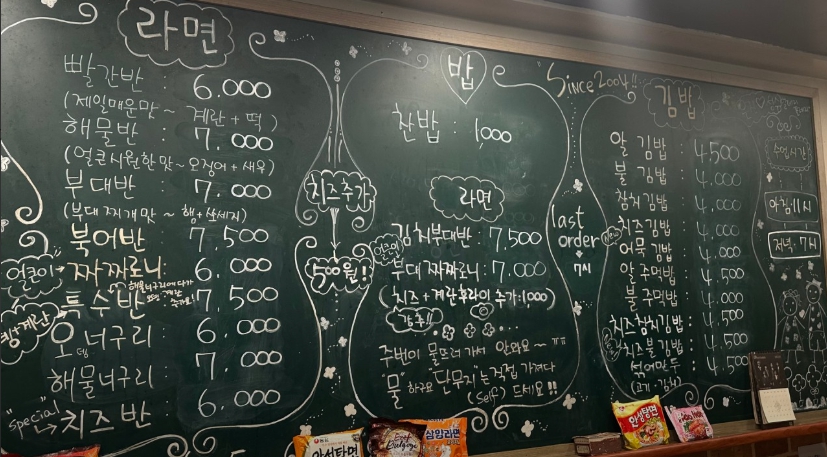 라면
빨간반 : 6.000
(제일매운맛~ 계란+떡)
해물반 : 7.000
(얼큰시원한맛~오징어+새우)
부대반 : 7.000
(부대찌개맛~ 햄+쏘세지)
북어반 7.500
얼큰이→ 짜짜로니: 6.000
특수반 7.500
오 너구리 6.000
해물너구리 7.000
"special" → 치즈반 : 6.000
치즈추가
500원!
밥
찬밥 : 1,000
라면
얼큰이
김치부대반: 7,500
부대짜짜로니: 7.000
(치즈+계란후라이 추가:1,000)
강추!!
주번이 물뜨러가서 안와요~ㅠㅠ
"물"하구요 "단무지"는 직접 가져다
(self) 드세요!!
Since 2004!!
last
order
7시
김밥
알 김밥 : 4.500
불 김밥 : 4.000
참치김밥 : 4.000
치즈김밥 : 4.000
어묵 김밥 : 4.000
알 주먹밥 : 4.500
불 주먹밥 : 4.000
치즈참치김밥 : 4.500
치즈불 김밥 : 4.500
섞어만두 : 4.500
(고기·김치)
아침:11시
저녁:7시
안성탕면
삼양라면
안성탕면